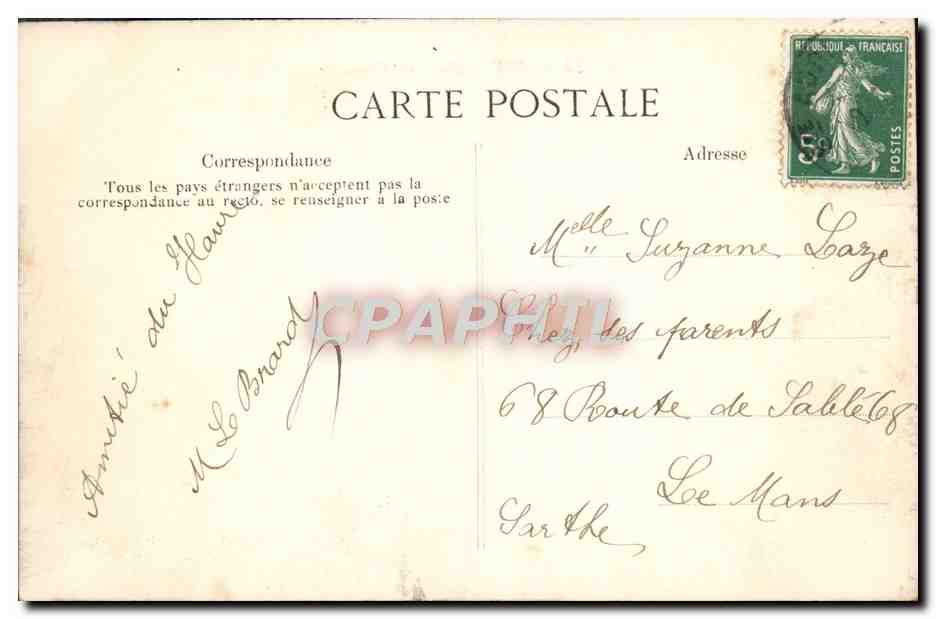 CARTE POSTALE
Correspondance
Tous les pays étrangers n'acceptent pas la
correspondance au recto. se renseigner à la poste
Adresse
RÉPUBLIQUE FRANÇAISE
5c
POSTES
Amitié du Havre
M Le Brard
Melle Suzanne Laze
Chez ses parents
68 Route de Sablé 68
Le Mans
Sarthe
CPAPHIL